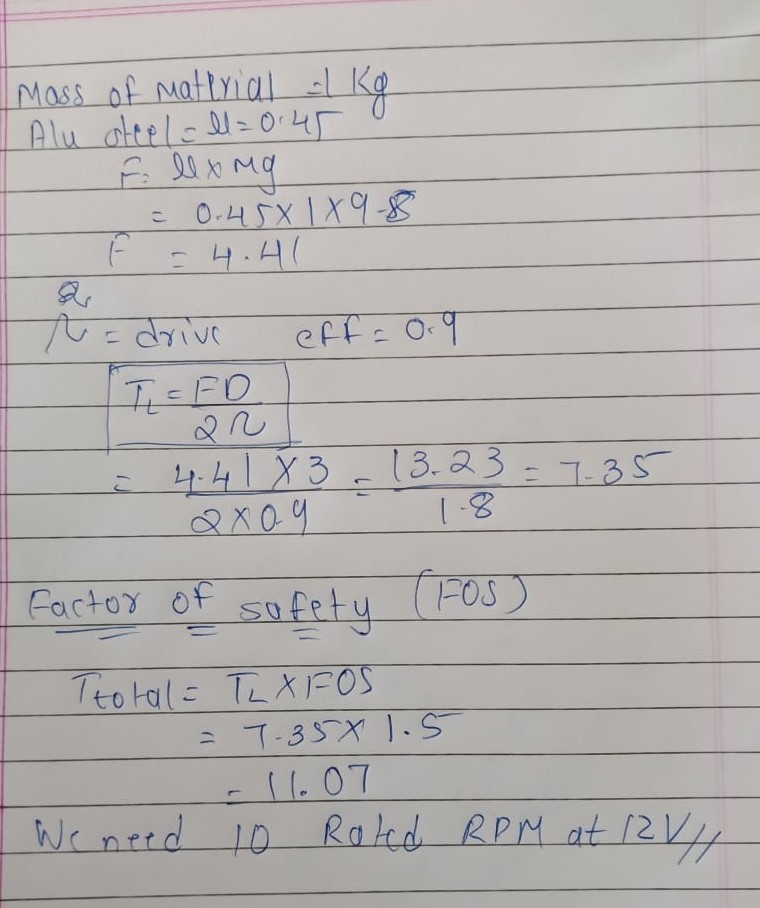 Mass of Material = 1 Kg
Alu steel = μ = 0.45
F = μ x Mg
= 0.45 x 1 x 9.8
F = 4.41
η = drive eff = 0.9
TL = FD / 2η
= 4.41 X 3 / 2 X 0.9 = 13.23 / 1.8 = 7.35
Factor of safety (FOS)
Ttotal = TL X FOS
= 7.35 X 1.5
= 11.07
We need 10 Rated RPM at 12V //